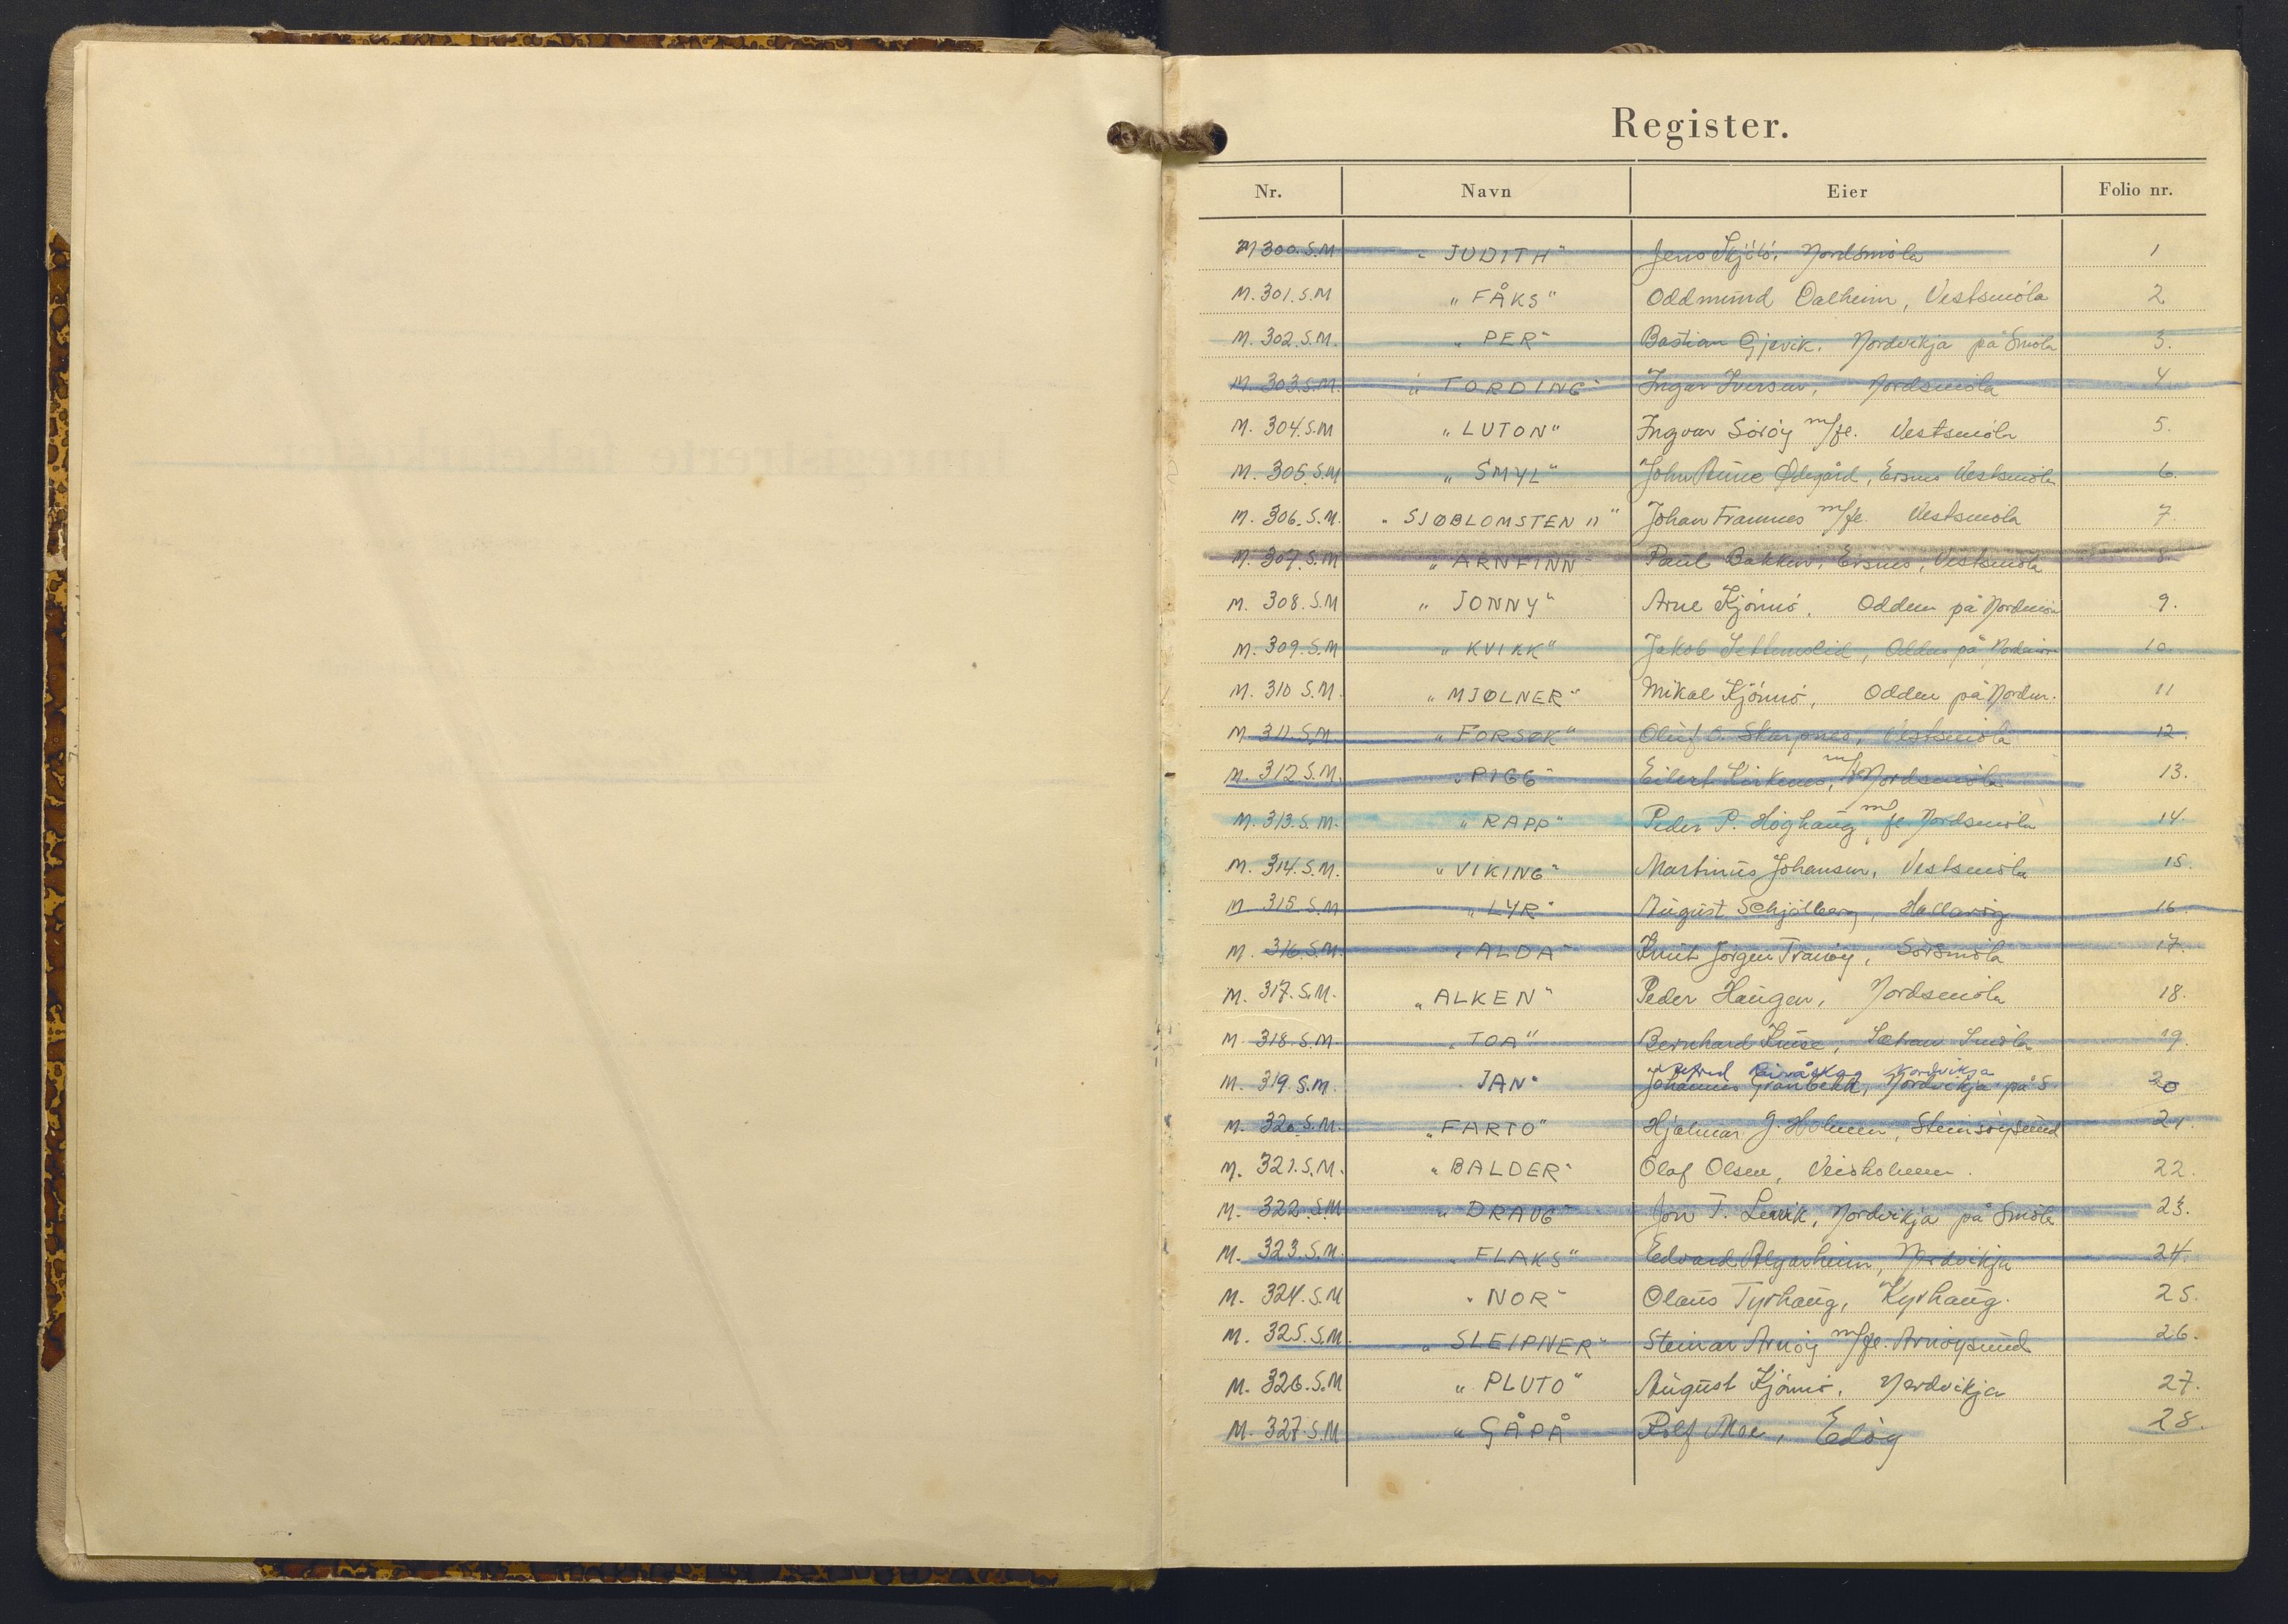 Register.
Nr. Navn Eier Folio nr.
M 300. S.M "JUDITH" Jens Skjölö. Nordsmöla 1
M. 301. S.M "FÅKS" Oddmund Dalheim, Vestsmöla 2
M. 302. S.M. "PER" Bastian Gjevik. Nordvikja på Smöla 3.
M. 303. S.M. "TORDING" Ingar Iversen, Nordsmöla 4
M. 304. S.M "LUTON" Ingvar Söröy m/fl. Vestsmöla 5.
M. 305. S.M "SMYL" John Rune Ødegård, Ersnes Vestsmöla 6.
M. 306. S.M. "SJØBLOMSTEN II" Johan Framnes m/fl. Vestsmöla 7.
M. 307. S.M "ARNFINN" Paul Bakken, Ersnes, Vestsmöla 8.
M. 308. S.M "JONNY" Arne Kjönnö. Odden på Nordmöre 9.
M. 309. S.M "KVIKK" Jakob Settemslid, Odden på Nordmöre 10.
M. 310 S.M. "MJØLNER" Mikal Kjönnö, Odden på Nordm. 11
M. 311. S.M. "FORSØK" Oluf O. Skarpnes, Vestsmöla 12.
M. 312 S.M. "PIGG" Eilert Kirknes, m/fl Nordsmöla 13.
M. 313. S.M. "RAPP" Peder P. Höghaug m/fl. Nordsmöla 14.
M. 314. S.M. "VIKING" Martinus Johansen, Vestsmöla 15.
M 315. S.M "LYR" August Schjölberg, Hallarøy 16.
M. 316. S.M. "ALDA" Knut Jörgen Tranöy, Sörsmöla 17.
M. 317. S.M. "ALKEN" Peder Haugen, Nordsmöla 18.
M. 318. S.M. "TOA" Bernhard Kruse, Sætran Smöla 19.
M. 319. S.M. "JAN" Johannes Granbekk, Nordvikja på S. 20
Nordvikja
M. 320. S.M. "FARTO" Hjalmar J. Holmen, Steinsöysund 21.
M. 321. S.M. "BALDER" Olaf Olsen, Veidholmen. 22.
M. 322. S.M "DRAUG" Jon T. Lervik, Nordvikja på Smöla 23.
M. 323. S.M. "FLAKS" Edvard Algarheim, Nordvikja 24.
M. 324. S.M "NOR" Olaus Tyrhaug, Kyrhaug. 25.
M. 325. S.M. "SLEIPNER" Steinar Arnöy m/fl. Arnöysund 26.
M. 326. S.M "PLUTO" August Kjönnö, Nordvikja 27.
M. 327. S.M "GÅPÅ Rolf Moe, Edöy 28.